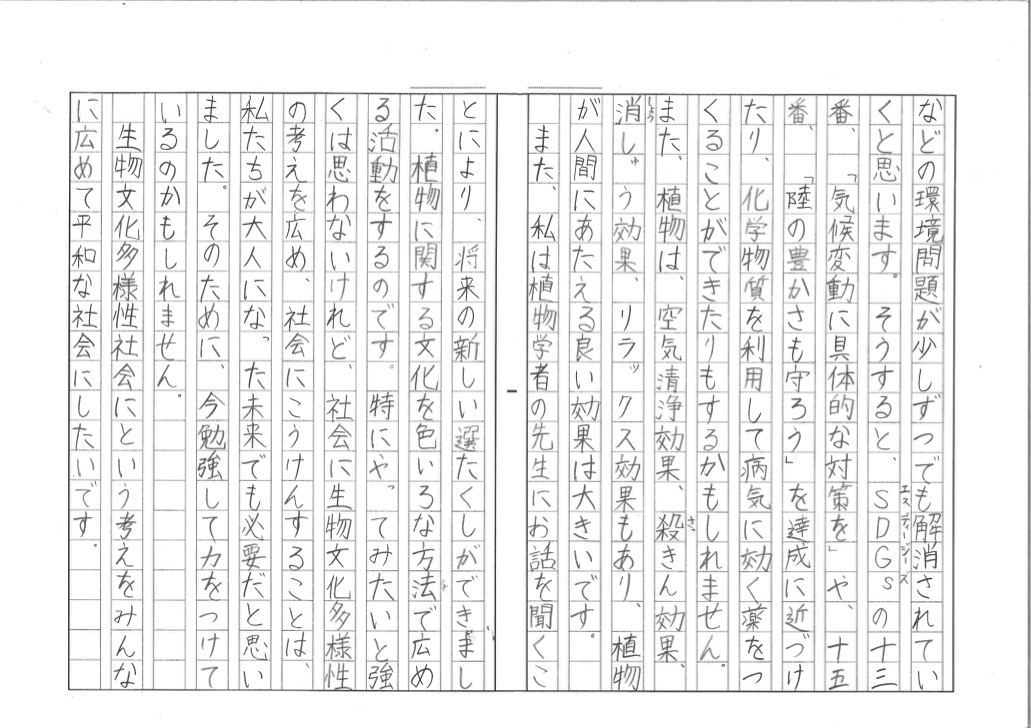 などの環境問題が少しずつでも解消されてい
くと思います。そうすると、SDGsの十三
エスディージーズ
番、「気候変動に具体的な対策を」や、十五
番、「陸の豊かさも守ろう」を達成に近づけ
たり、化学物質を利用して病気に効く薬をつ
くることができたりもするかもしれません。
また、植物は、空気清浄効果、殺きん効果、
さっ
消しゅう効果、リラックス効果もあり、植物
しょう
が人間にあたえる良い効果は大きいです。
また、私は植物学者の先生にお話を聞くこ
とにより、将来の新しい選たくしができまし
た。植物に関する文化を色いろな方法で広め
る活動をするのです。特にやってみたいと強
くは思わないけれど、社会に生物文化多様性
の考えを広め、社会にこうけんすることは、
私たちが大人になった未来でも必要だと思い
ました。そのために、今勉強して力をつけて
いるのかもしれません。
生物文化多様性社会にという考えをみんな
に広めて平和な社会にしたいです。